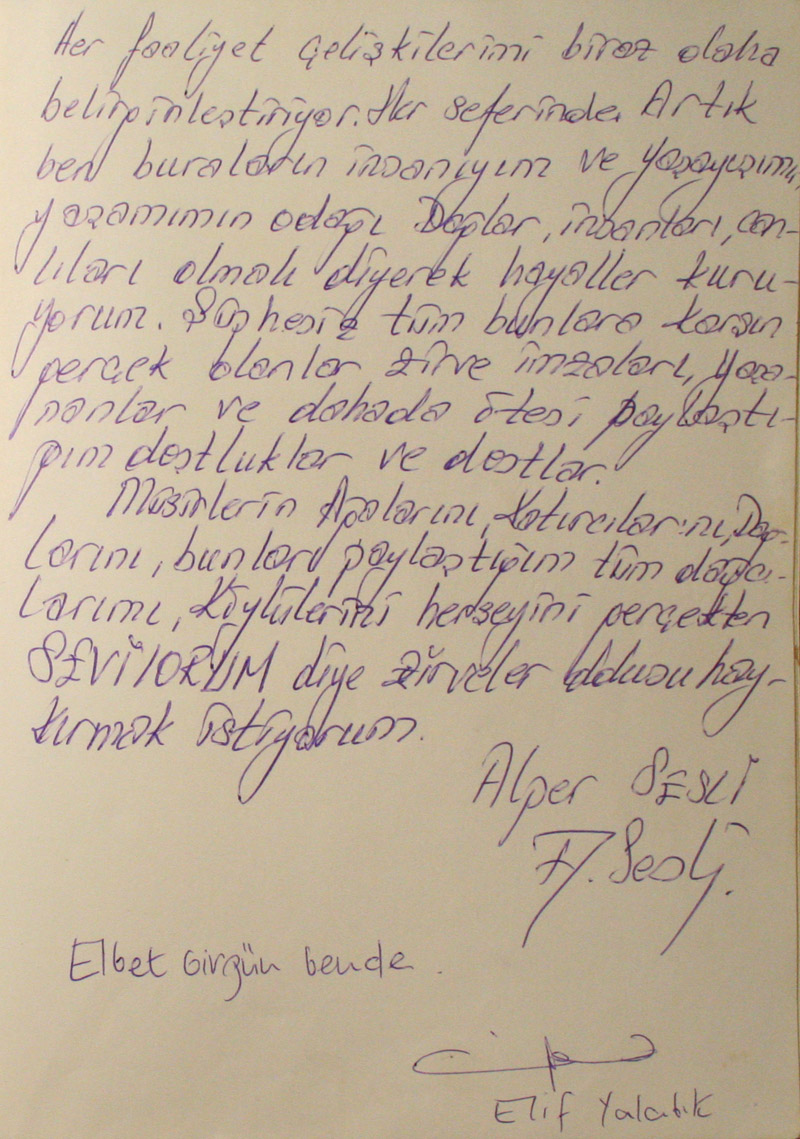 Her faaliyet çelişkilerimi biraz daha
belirginleştiriyor. Her seferinde. Artık
ben buraların insanıyım ve yaşayışımı,
yaşamımın odağı Dağlar, insanları, can-
lıları olmalı diyerek hayaller kuru-
yorum. Şüphesiz tüm bunlara karşın
gerçek olanlar zirve imzaları, yaşa-
nanlar ve dahada ötesi paylaştı-
ğım dostluklar ve dostlar.
Mısırlerin Ağalarını, Katırcılarını, Dağ-
larını, bunları paylaştığım tüm dağcı-
larımı, Köylülerini herşeyini gerçekten
SEVİYORUM diye zirveler dolusu hay-
kırmak istiyorum.
Alper SESLİ
A. Sesli.
Elbet birgün bende.
Elif Yalatık